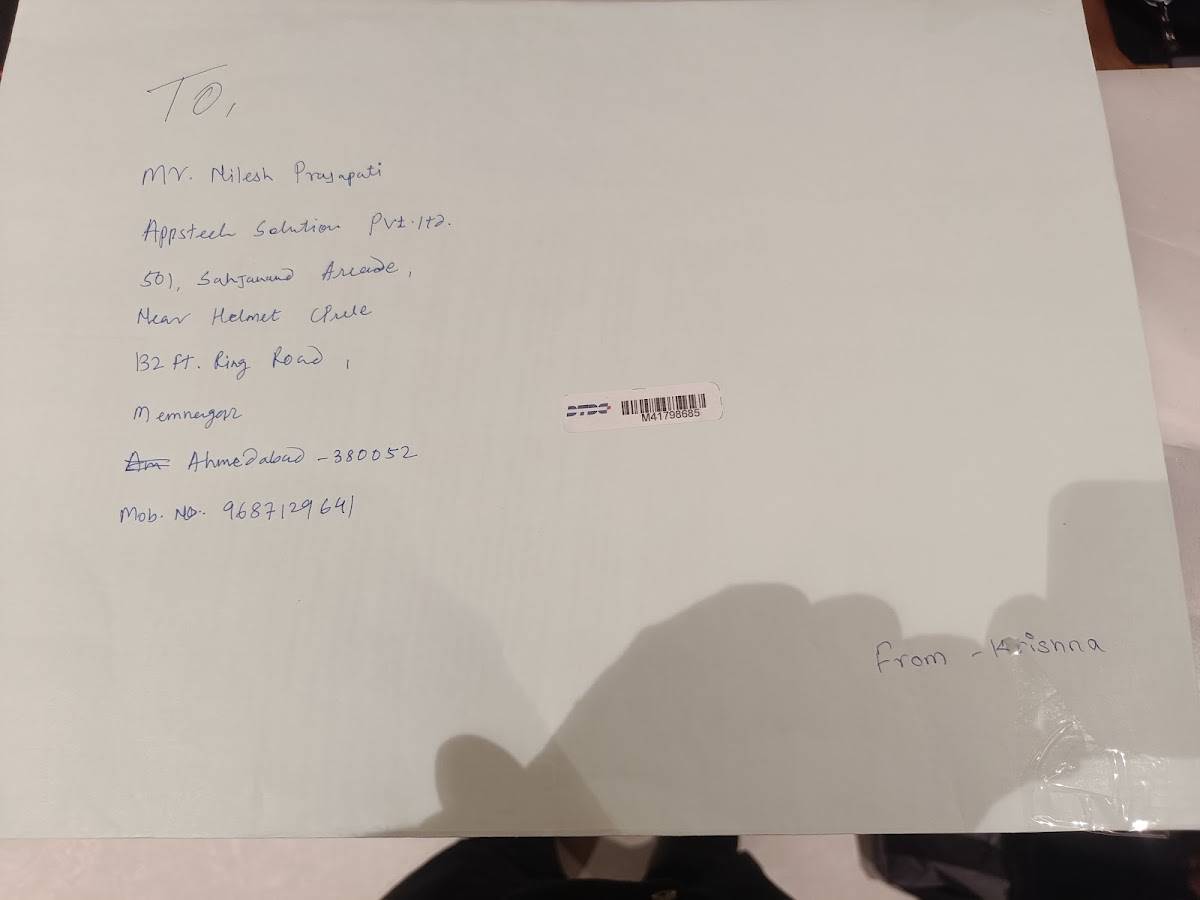 To,
Mr. Nilesh Prajapati
Appstech Solution Pvt. ltd.
501, Sahjanand Arcade,
Near Helmet Circle
132 ft. Ring Road,
Memnagar
Am Ahmedabad - 380052
Mob. No. 9687129641
DTDC
M41798685
From - Krishna